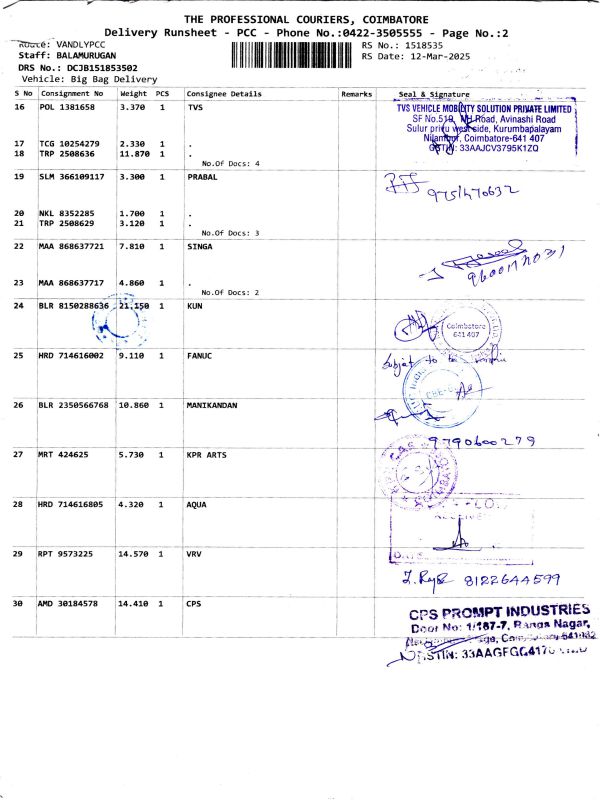 THE PROFESSIONAL COURIERS, COIMBATORE
Delivery Runsheet - PCC - Phone No.:0422-3505555 - Page No.:2
Route: VANDLYPCC
RS No.: 1518535
Staff: BALAMURUGAN
RS Date: 12-Mar-2025
DRS No.: DCJB151853502
Vehicle: Big Bag Delivery
S No Consignment No Weight PCS Consignee Details Remarks Seal & Signature
16 POL 1381658 3.370 1 TVS
TVS VEHICLE MOBILITY SOLUTION PRIVATE LIMITED
SF No.519, NH Road, Avinashi Road
Sulur privu west side, Kurumbapalayam
17 TCG 10254279 2.330 1 .
Nilambur, Coimbatore-641 407
18 TRP 2508636 11.870 1 .
GSTIN: 33AAJCV3795K1ZQ
No.Of Docs: 4
19 SLM 366109117 3.300 1 PRABAL
9751470632
20 NKL 8352285 1.700 1 .
21 TRP 2508629 3.120 1 .
No.Of Docs: 3
22 MAA 868637721 7.810 1 SINGA
23 MAA 868637717 4.860 1 .
No.Of Docs: 2
24 BLR 8150288636 21.150 1 KUN
Coimbatore
641 407
25 HRD 714616002 9.110 1 FANUC
Subject to
26 BLR 2350566768 10.860 1 MANIKANDAN
9790600279
27 MRT 424625 5.730 1 KPR ARTS
28 HRD 714616805 4.320 1 AQUA
DATE
29 RPT 9573225 14.570 1 VRV
8122644599
30 AMD 30184578 14.410 1 CPS
CPS PROMPT INDUSTRIES
Door No: 1/187-7, Ranga Nagar,